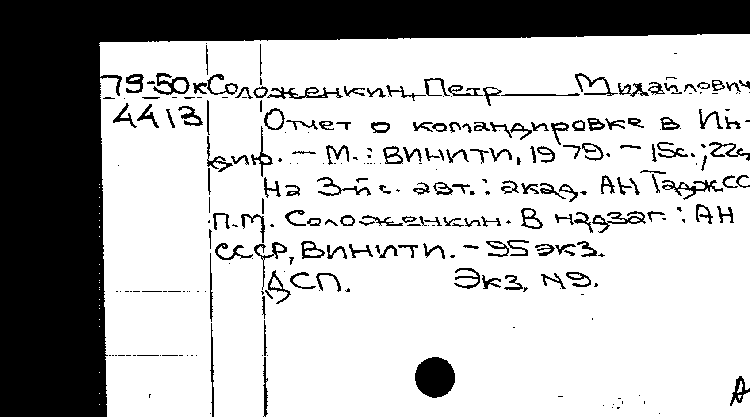 79-50к Соложенкин, Петр Михайлович
4413 Отчет о командировке в Ин-
дию. - М.: ВИНИТИ, 1979. - 15с.; 22с
На 3-й с. авт.: акад. АН ТаджСС
П.М. Соложенкин. В надзаг.: АН
СССР, ВИНИТИ. - 95 экз.
ДСП. Экз. N9.
А